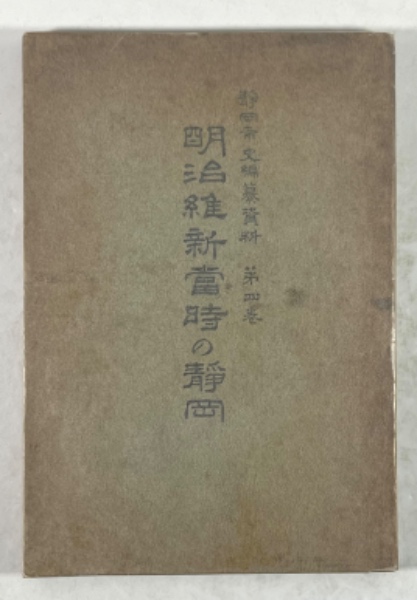 靜岡市史編纂資料 第四卷
明治維新當時の靜岡